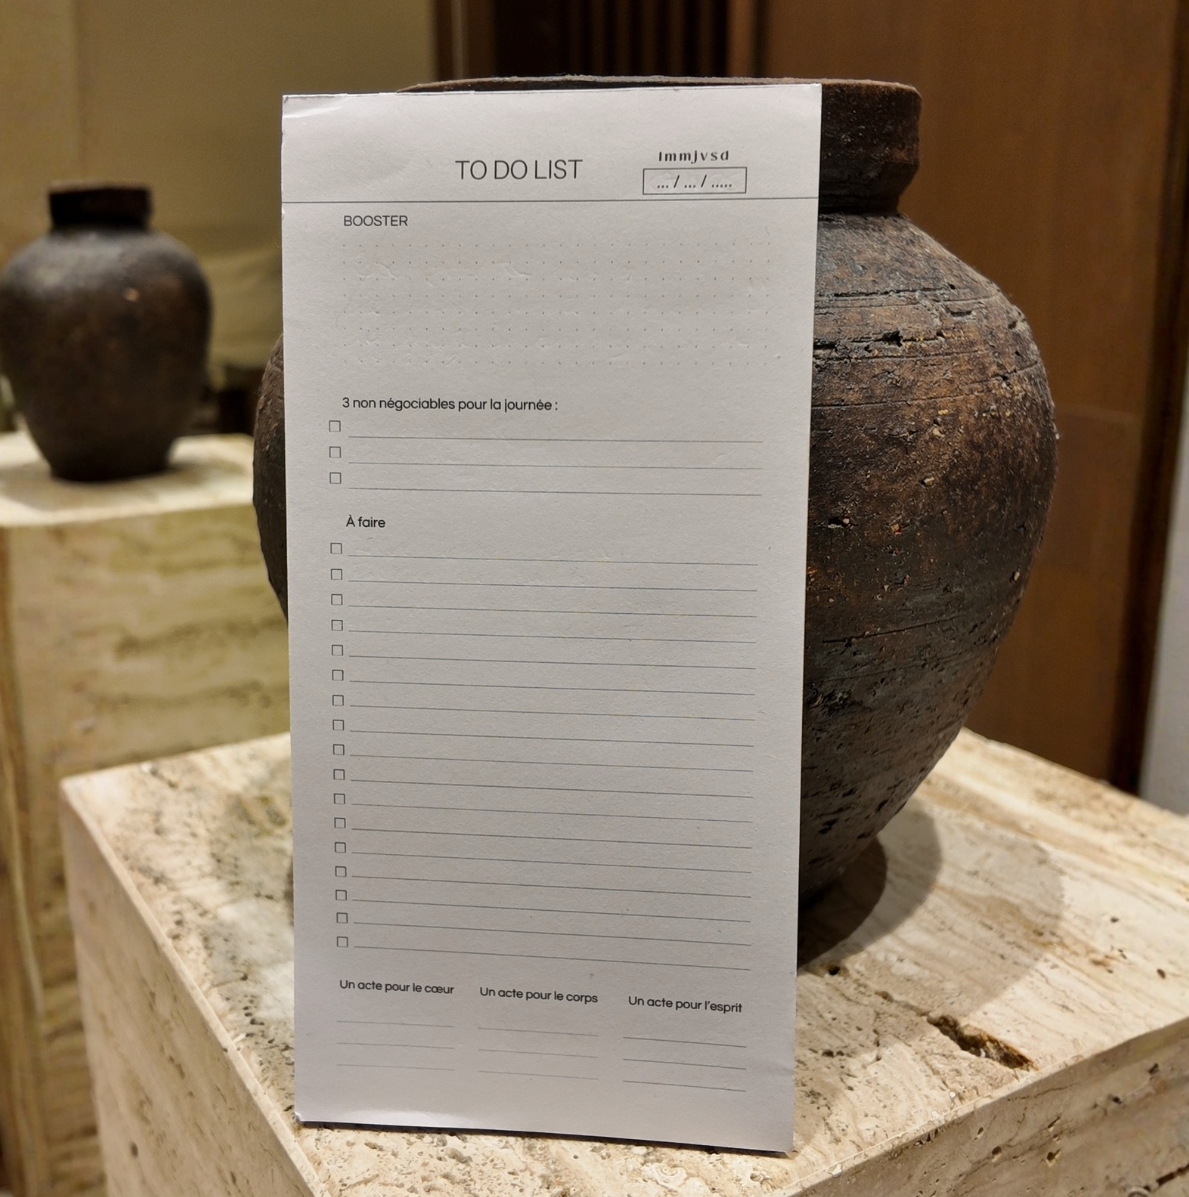 TO DO LIST
lmmjvsd
... / ... / .....
BOOSTER
3 non négociables pour la journée :
À faire
Un acte pour le cœur
Un acte pour le corps
Un acte pour l'esprit